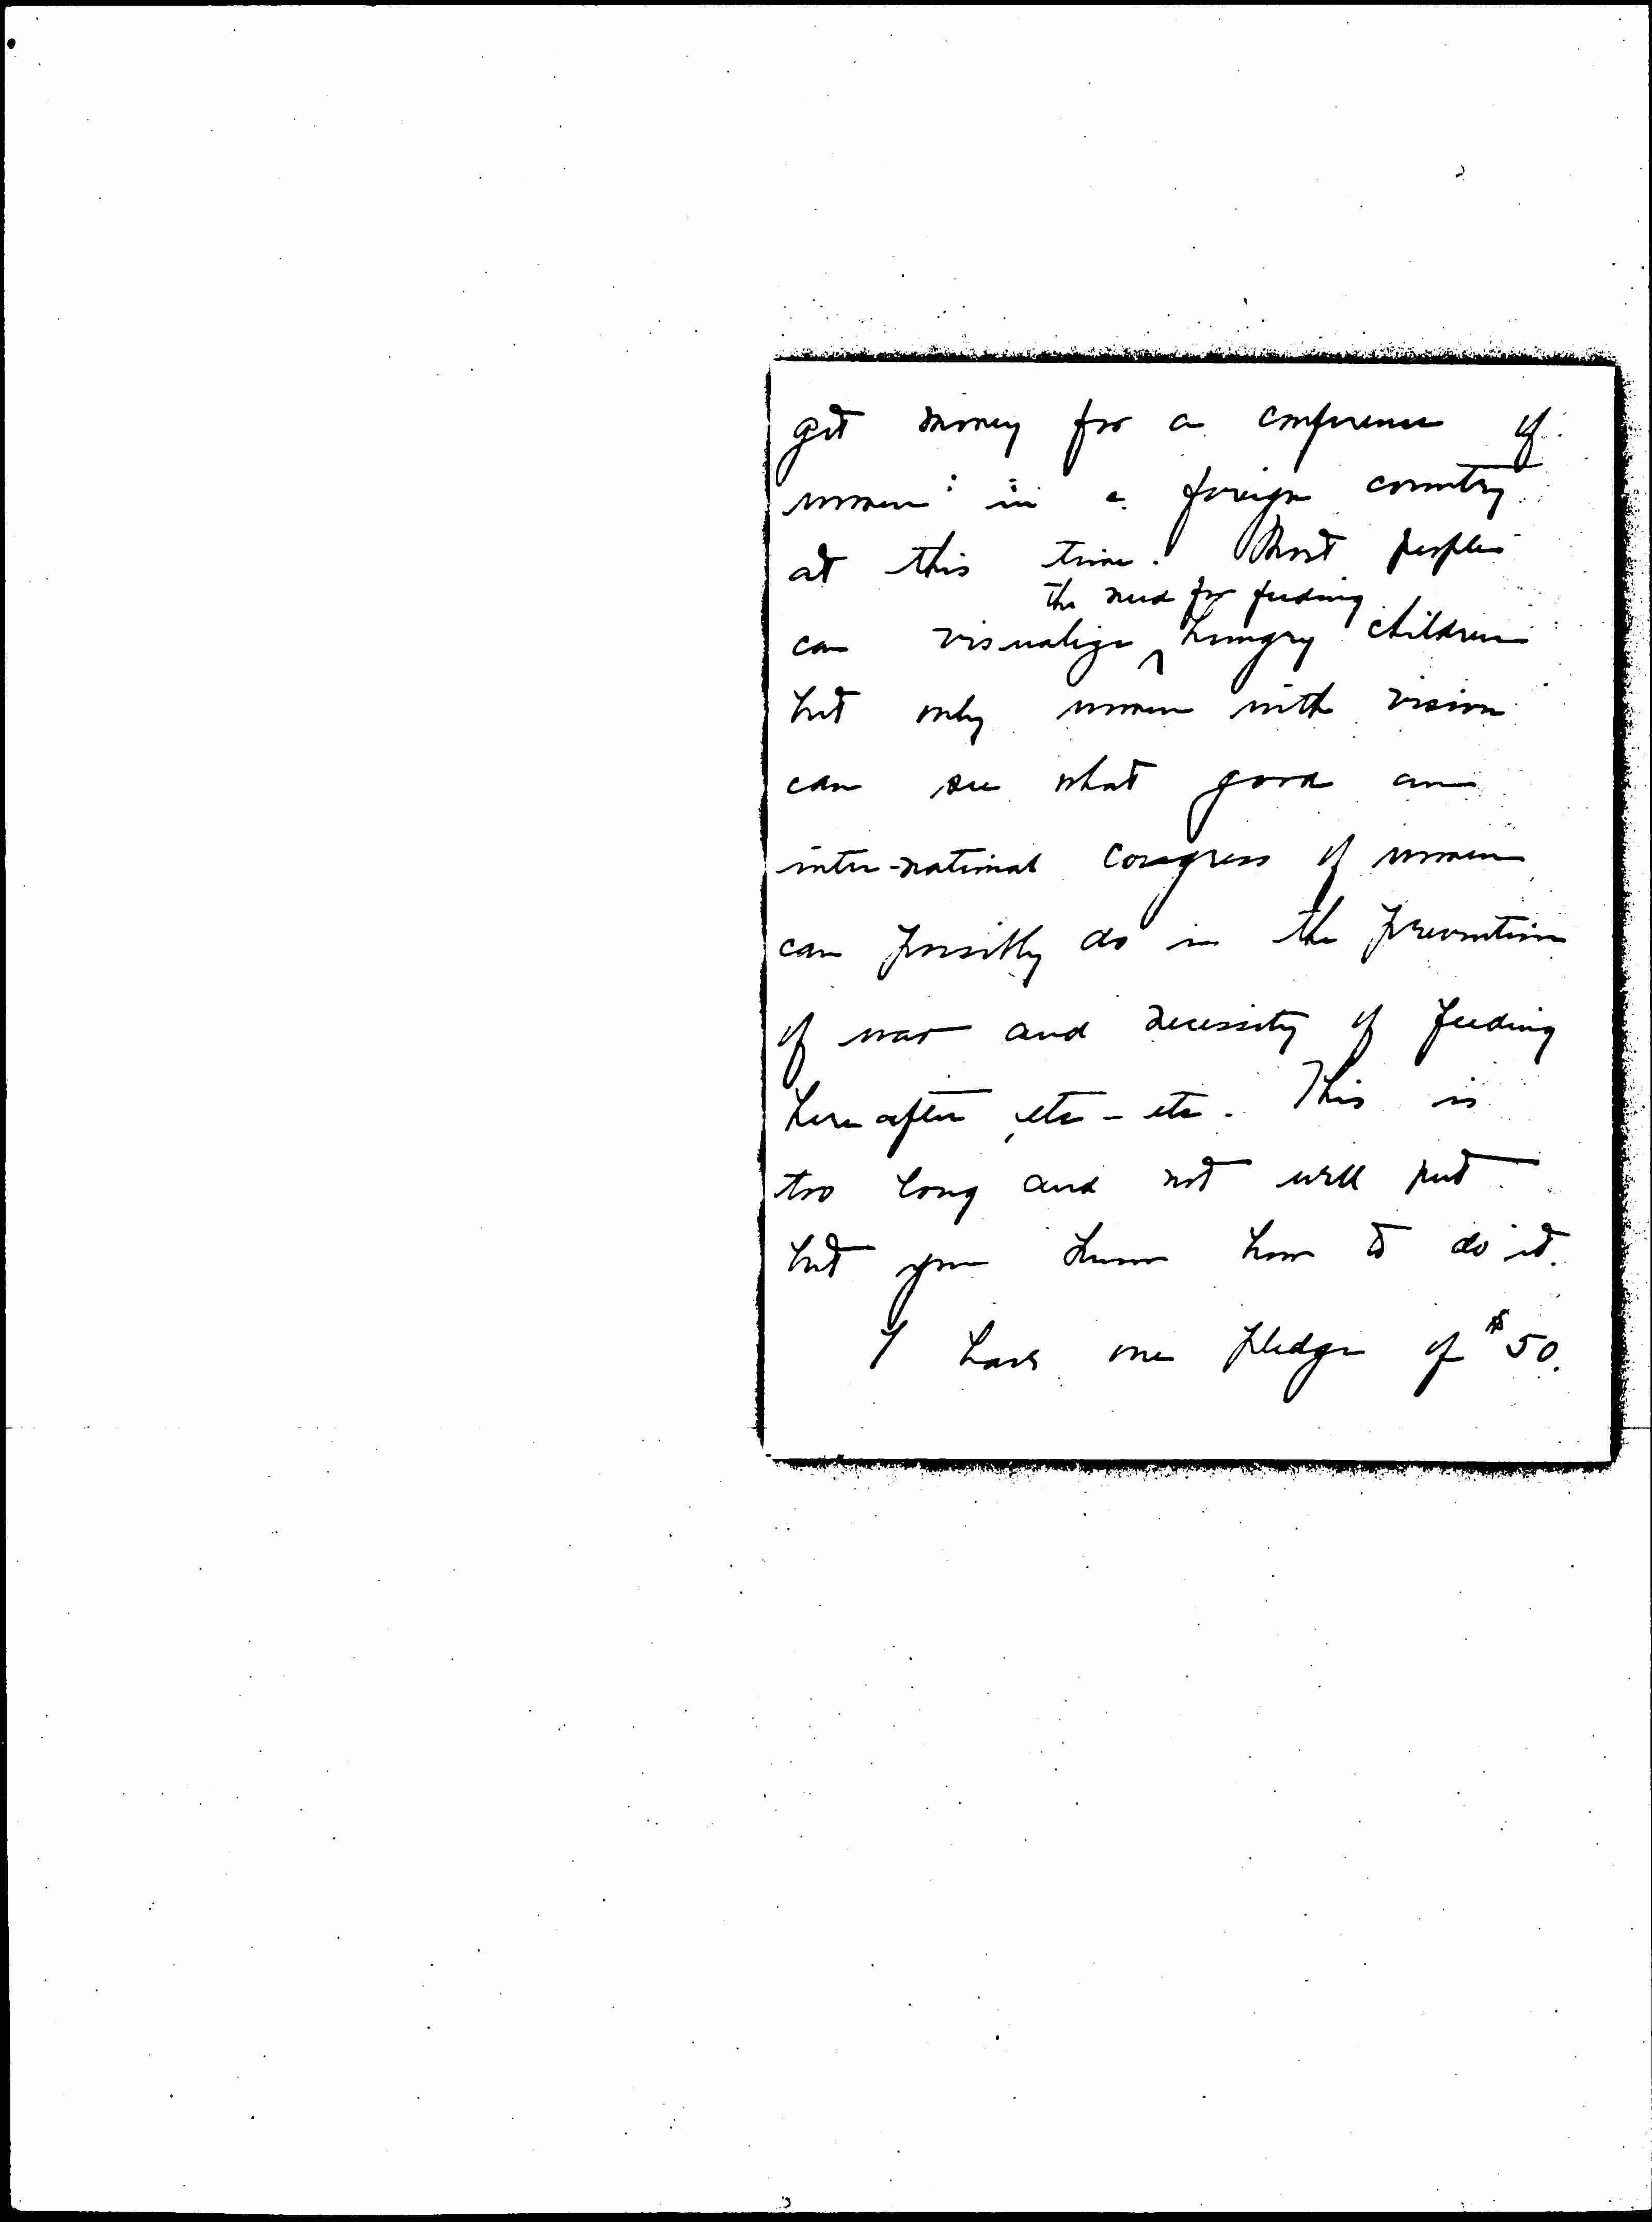 get money for a conference of
women in a foreign country
at this time. Most people
the need for feeding
can visualize ^ hungry children
but only women with vision
can see what good an
inter-national congress of women
can possibly do in the prevention
of war and necessity of feeding
here after, etc - etc. This is
too long and not well put
but you know how to do it.
I have one pledge of $50.